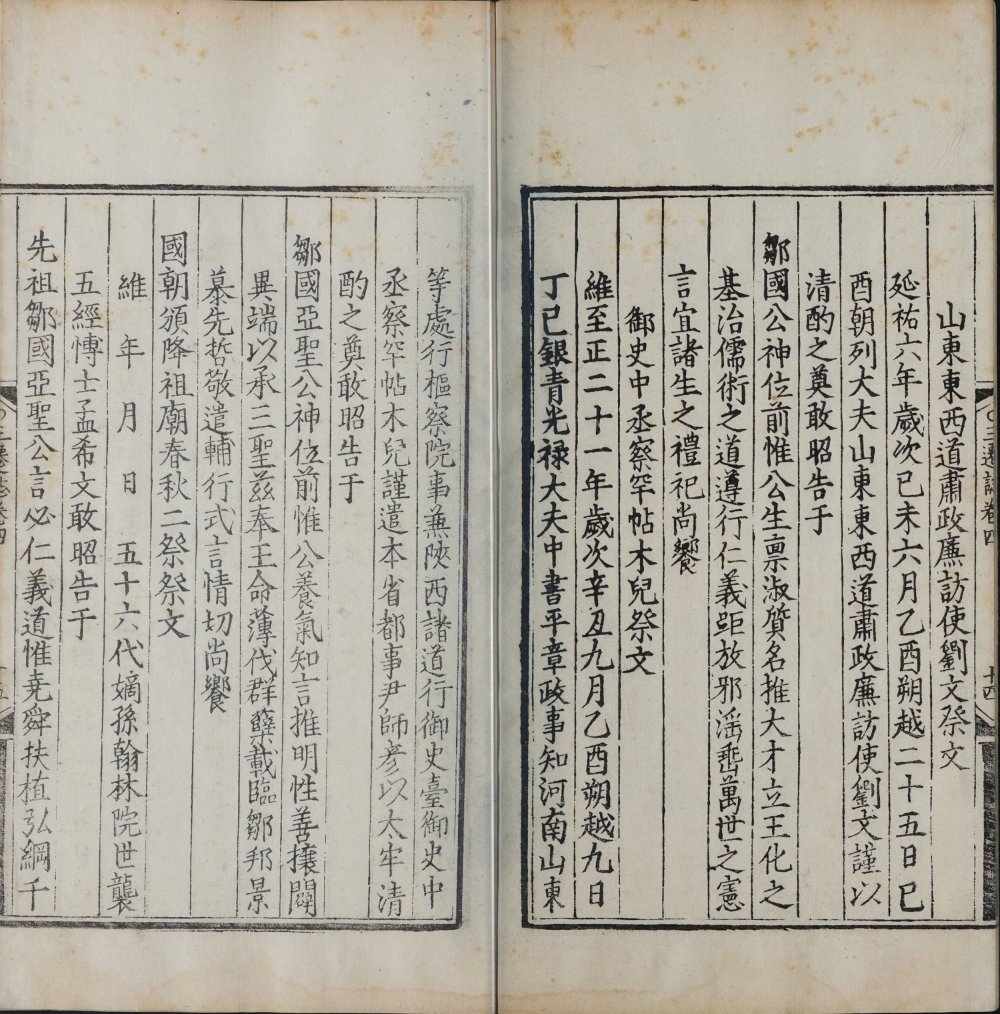 山東東西道肅政廉訪使劉文祭文
延祐六年歲次己未六月乙酉朔越二十五日己
酉朝列大夫山東東西道肅政廉訪使劉文謹以
清酌之奠敢昭告于
鄒國公神位前惟公生禀淑質名推大才立王化之
基治儒術之道遵行仁義距放邪滛埀萬世之憲
言宜諸生之禮祀尚饗
御史中丞察罕帖木兒祭文
維至正二十一年歲次辛丑九月乙酉朔越九日
丁巳銀青光禄大夫中書平章政事知河南山東
等處行樞密院事兼陜西諸道行御史臺御史中
丞察罕帖木兒謹遣本省都事尹師彦以太牢清
酌之奠敢昭告于
鄒國亞聖公神位前惟公養氣知言推明性善攘闢
異端以承三聖兹奉王命薄伐群孽載臨鄒邦景
慕先哲敬遣輔行式言情切尚饗
國朝頒降祖廟春秋二祭祭文
維 年 月 日 五十六代嫡孫翰林院世襲
五經愽士孟希文敢昭告于
先祖鄒國亞聖公言必仁義道惟堯舜扶植弘綱千
三遷誌卷四 十四